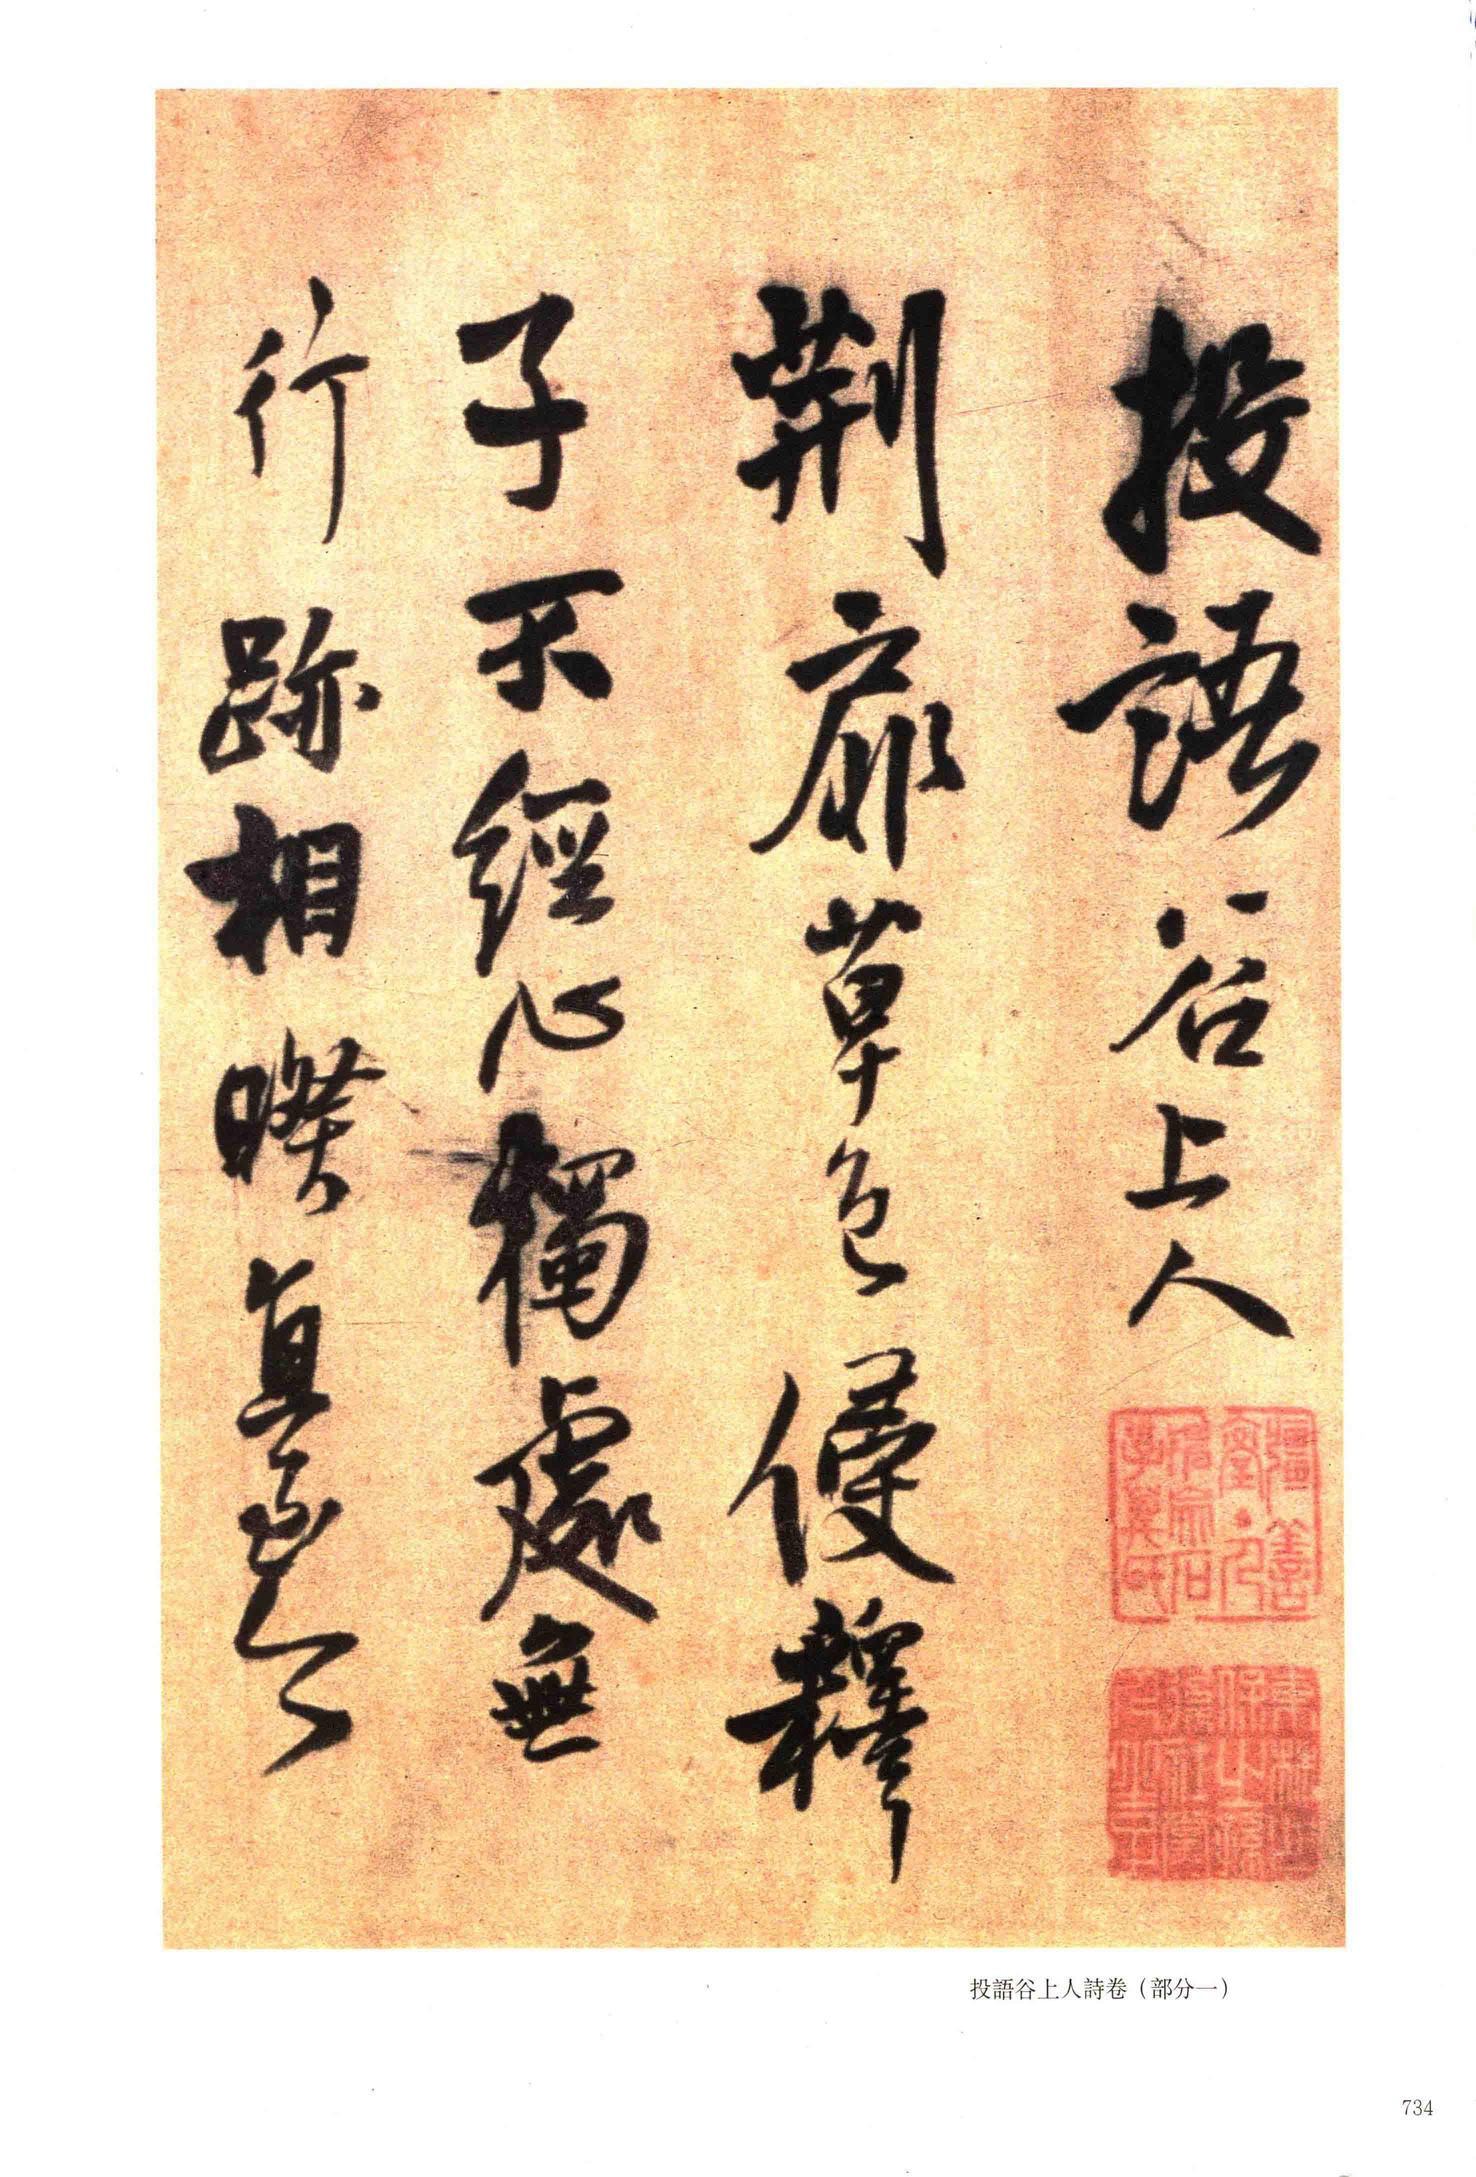 投語谷上人
荆扉草色侵釋
子不經心獨處無
行跡相暌直至今
投語谷上人詩卷（部分一）
734